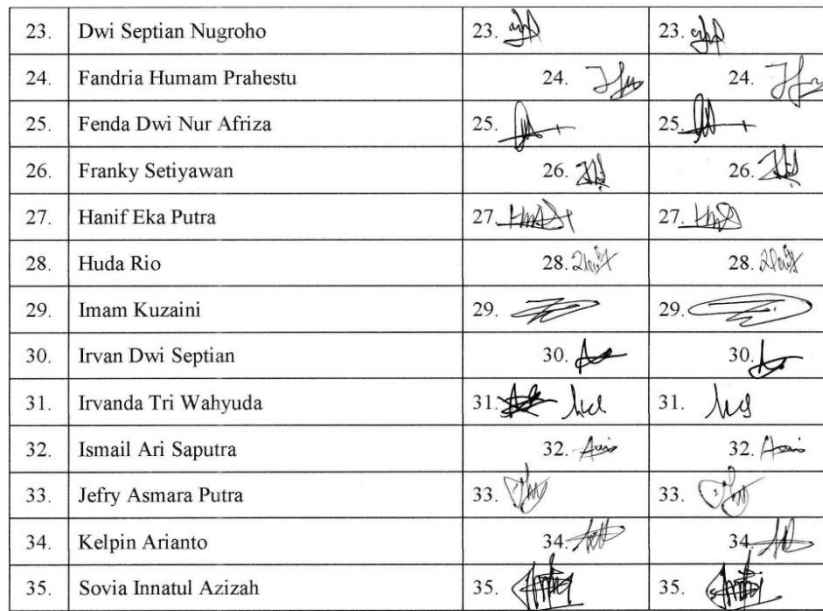 23. Dwi Septian Nugroho 23. 23.
24. Fandria Humam Prahestu 24. 24.
25. Fenda Dwi Nur Afriza 25. 25.
26. Franky Setiyawan 26. 26.
27. Hanif Eka Putra 27. 27.
28. Huda Rio 28. 28.
29. Imam Kuzaini 29. 29.
30. Irvan Dwi Septian 30. 30.
31. Irvanda Tri Wahyuda 31. 31.
32. Ismail Ari Saputra 32. 32.
33. Jefry Asmara Putra 33. 33.
34. Kelpin Arianto 34. 34.
35. Sovia Innatul Azizah 35. 35.